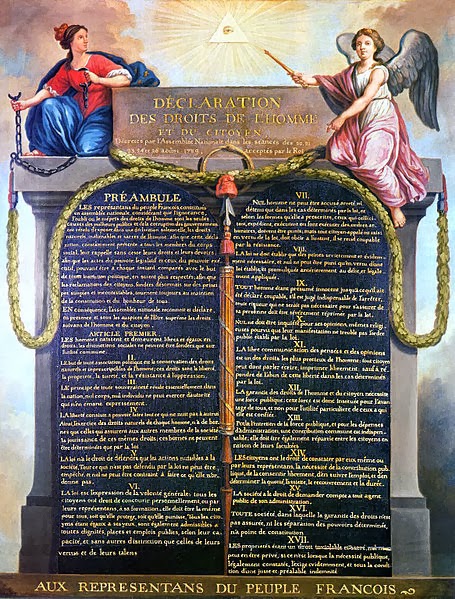 DÉCLARATION
DES DROITS DE L'HOMME
ET DU CITOYEN,
Décrétés par l'Assemblée Nationale dans les séances des 20, 21,
23, 24 et 26 août, 1789, acceptés par le Roi
PRÉAMBULE
LES représentans du peuple François, constitués
en assemblée nationale, considérant que l'ignorance,
l'oubli ou le mépris des droits de l'homme sont les seules
causes des malheurs publics et de la corruption des gouvernemens
ont résolu d'exposer dans une déclaration solemnelle, les droits
naturels, inaliénables et sacrés de l'homme; afin que cette décla-
ration, constamment présente à tous les membres du corps
social, leur rappelle sans cesse leurs droits et leurs devoirs;
afin que les actes du pouvoir législatif et ceux du pouvoir exé-
cutif, pouvant être à chaque instant comparés avec le but
de toute institution politique, en soient plus respectés; afin que
les réclamations des citoyens, fondées désormais sur des princi-
pes simples et incontestables, tournent toujours au maintien
de la constitution et du bonheur de tous.
EN conséquence, l'assemblée nationale reconnoit et déclare,
en présence et sous les auspices de l'Être suprême les droits
suivans de l'homme et du citoyen.
ARTICLE PREMIER.
LES hommes naissent et demeurent libres et égaux en
droits. les distinctions sociales ne peuvent être fondées que sur
l'utilité commune.
II.
LE but de toute association politique est la conservation des droits
naturels et imprescriptibles de l'homme; ces droits sont la liberté,
la propriété, la sureté, et la résistance à l'oppression.
III.
LE principe de toute souveraineté réside essentiellement dans
la nation, nul corps, nul individu ne peut exercer d'autorité
qui n'en émane expressement.
IV.
LA liberté consiste à pouvoir faire tout ce qui ne nuit pas à autrui
Ainsi, l'exercice des droits naturels de chaque homme, n'a de bor-
nes que celles qui assurent aux autres membres de la société
la jouissance de ces mêmes droits; ces bornes ne peuvent
être déterminées que par la loi.
V.
LA loi n'a le droit de défendre que les actions nuisibles à la
société. Tout ce qui n'est pas défendu par la loi ne peut être
empêché, et nul ne peut être contraint à faire ce qu'elle n'or-
donne pas.
VI.
LA loi est l'expression de la volonté générale; tous les
citoyens ont droit de concourir personnellement, ou par
leurs représentans, à sa formation; elle doit être la même
pour tous, soit qu'elle protege, soit qu'elle punisse. Tous les cito-
yens étant égaux à ses yeux, sont également admissibles à
toutes dignités, places et emplois publics, selon leur ca-
pacité, et sans autres distinction que celles de leurs
vertus et de leurs talens.
VII.
NUL homme ne peut être accusé, arrêté ni
détenu que dans les cas déterminés par la loi, et
selon les formes qu'elle a prescrites. ceux qui sollici-
tent, expédient, exécutent ou font exécuter des ordres ar-
bitraires, doivent être punis; mais tout citoyen appelé ou saisi
en vertu de la loi, doit obéir à l'instant, il se rend coupable
par la résistance.
VIII.
LA loi ne doit établir que des peines strictement et évidem-
ment nécessaire, et nul ne peut être puni qu'en vertu d'une
loi établie et promulguée antérieurement au délit, et légale-
ment appliquée.
IX.
TOUT homme étant présumé innocent jusqu'à ce qu'il ait
été déclaré coupable, s'il est jugé indispensable de l'arrêter,
toute rigueur qui ne serait pas nécessaire pour s'assurer de
sa personne doit être sévèrement réprimée par la loi.
X.
NUL ne doit être inquiété pour ses opinions, mêmes religi-
euses pourvu que leur manifestation ne trouble pas l'ordre
public établi par la loi.
XI.
LA libre communication des pensées et des opinions
est un des droits les plus précieux de l'homme; tout citoyen
peut donc parler écrire, imprimer librement; sauf à ré-
pondre de l'abus de cette liberté dans les cas déterminés
par la loi.
XII.
LA garantie des droits de l'homme et du citoyen nécessite
une force publique; cette force est donc instituée pour l'avan-
tage de tous, et non pour l'utilité particulière de ceux à qui
elle est confiée.
XIII.
Pour l'entretien de la force publique, et pour les dépenses
d'administration, une contribution commune est indispen-
sable; elle doit être également répartie entre les citoyens en
raison de leurs facultées.
XIV.
LES citoyens ont le droit de constater par eux même ou
par leurs représentans, la nécessité de la contribution pub-
lique, de la consentir librement, d'en suivre l'emploi, et d'en
déterminer la quotité, l'assiette, le recouvrement et la durée.
XV.
LA société a le droit de demander compte à tout agent
public de son administration.
XVI.
TOUTE société, dans laquelle la garantie des droits n'est
pas assurée, ni la séparation des pouvoirs déterminée,
n'a point de constitution.
XVII.
LES propriétés étant un droit inviolable et sacré, nul ne
peut en être privé, si ce n'est lorsque la nécessité publique,
légalement constatée, l'exige évidemment, et sous la condi-
tion d'une juste et préalable indemnité.
AUX REPRESENTANS DU PEUPLE FRANCOIS